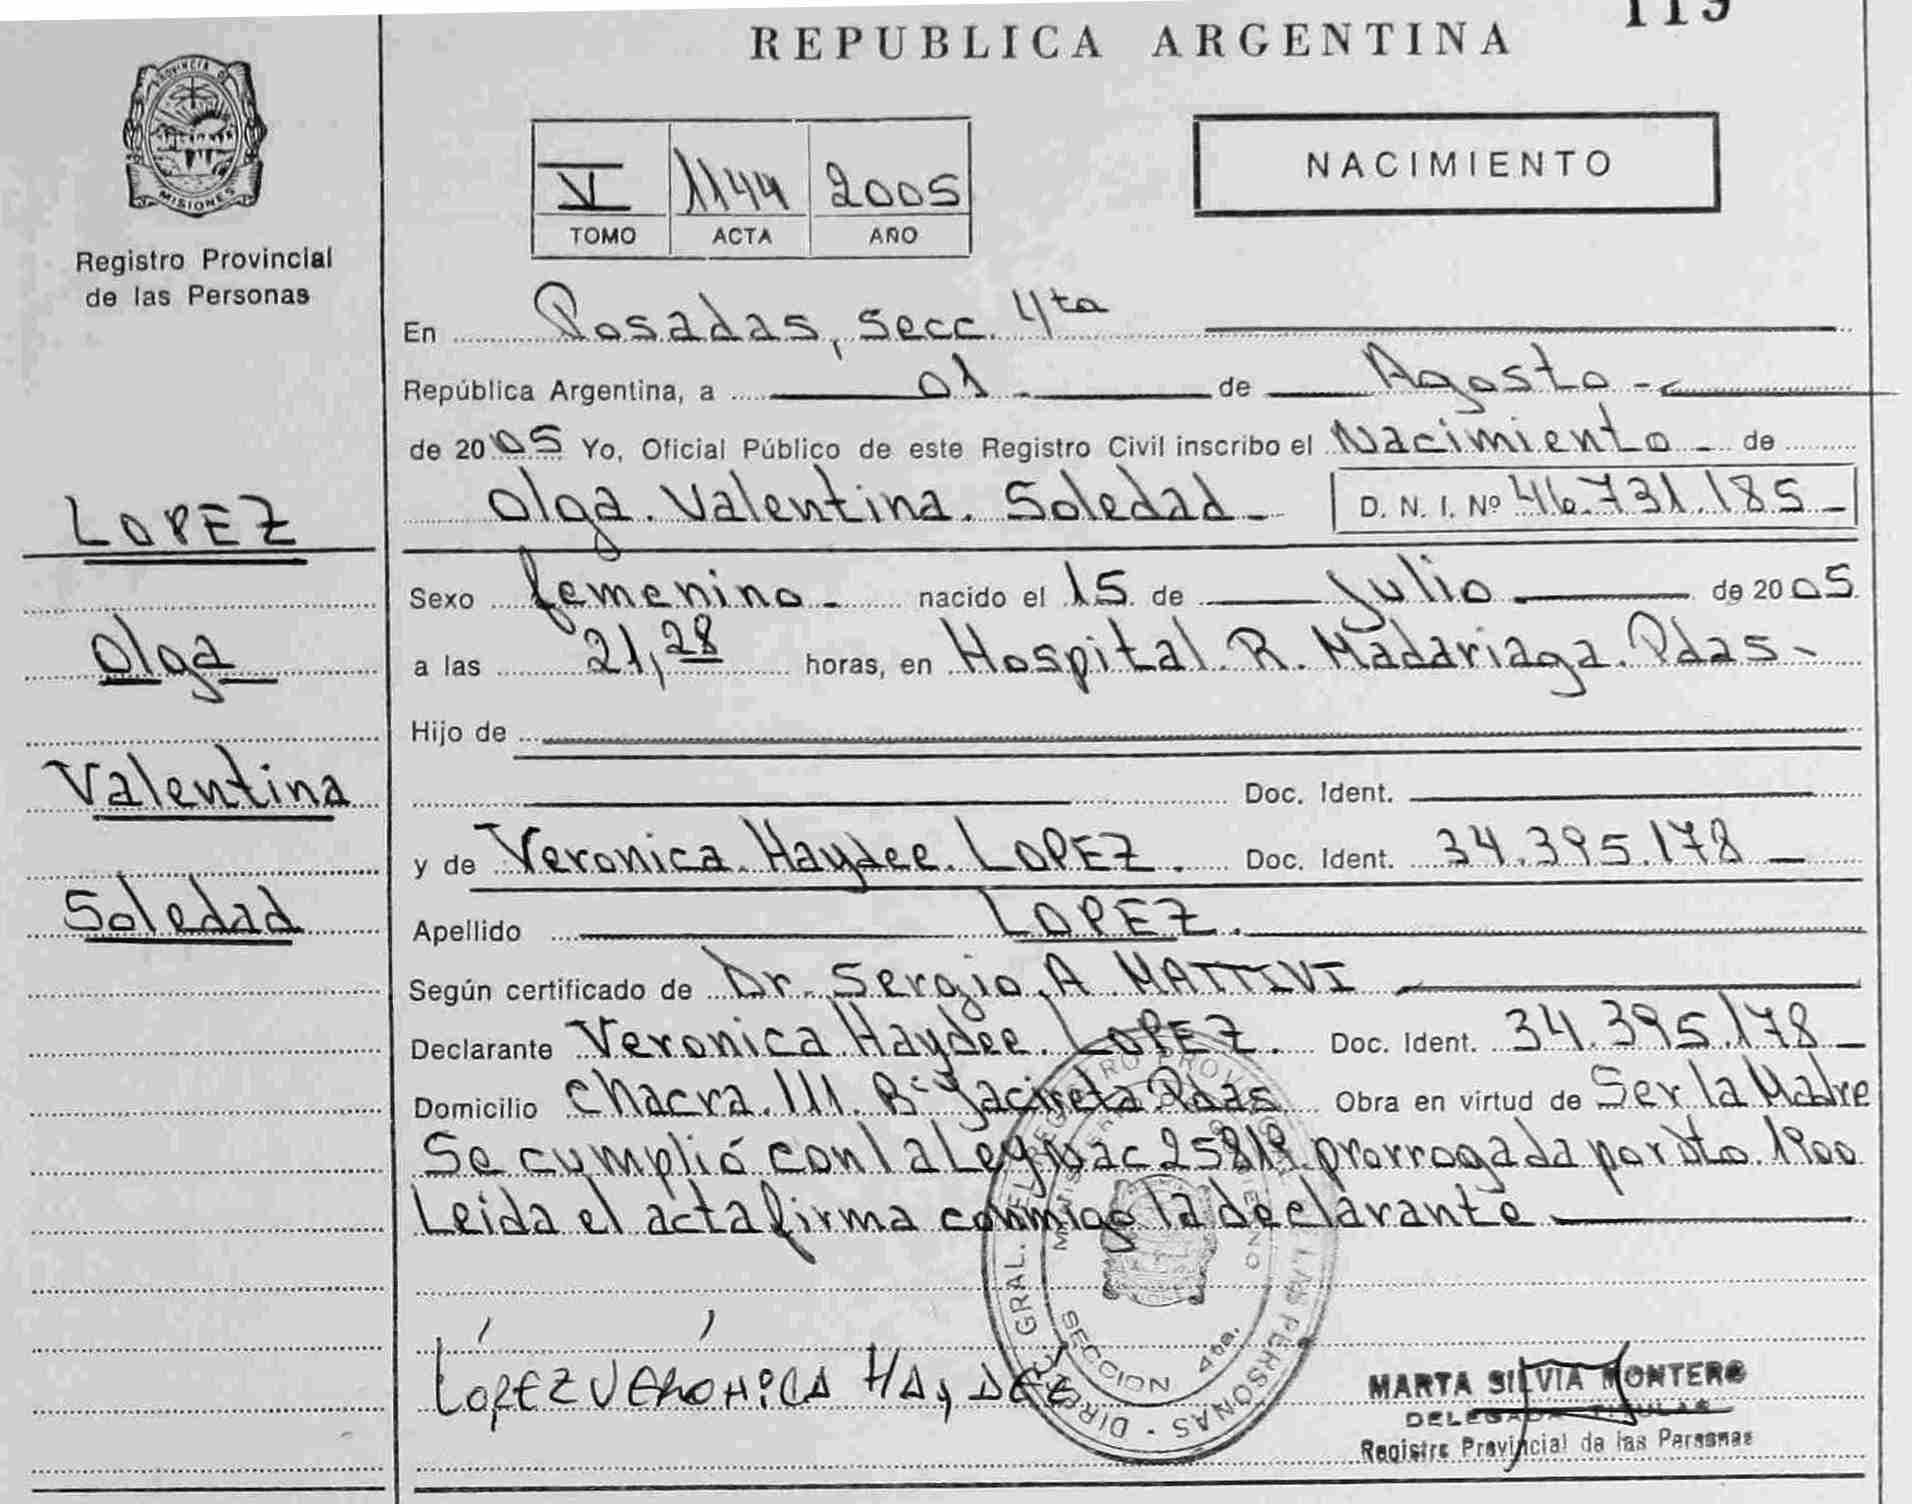 119
REPUBLICA ARGENTINA
PROVINCIA DE
MISIONES
Registro Provincial
de las Personas
V 1144 2005
TOMO ACTA AÑO
NACIMIENTO
En Posadas, secc. 4ta
República Argentina, a 01 de Agosto
de 2005 Yo, Oficial Público de este Registro Civil inscribo el Nacimiento de
Olga. Valentina. Soledad D. N. I. Nº 46.731.185
LOPEZ
Olga
Valentina
Soledad
Sexo femenino nacido el 15 de Julio de 2005
a las 21,28 horas, en Hospital R. Madariaga. Pdas
Hijo de
Doc. Ident.
y de Veronica. Haydee. LOPEZ. Doc. Ident. 34.395.178
Apellido LOPEZ.
Según certificado de Dr. Sergio. A MATTIVI
Declarante Veronica Haydee. LOPEZ. Doc. Ident. 34.395.178
Domicilio Chacra. 111. Bº Yacireta. Pdas Obra en virtud de Ser la Madre
Se cumplió con la Ley Nac 25819 prorrogada por Dto. 1900
Leida el acta firma conmigo la declarante
LóPEZ VERÓNiCA HAyDEE
SECCION 4ta.
MARTA SILVIA MONTERO
DELEGADA TITULAR
Registro Provincial de las Personas